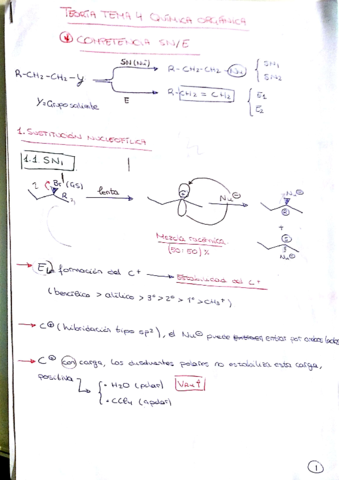 TEORÍA TEMA 4 QUÍMICA ORGÁNICA
* COMPETENCIA SN/E
SN(Nü)
R-CH2-CH2-Y
R-CH2-CH2-Nu
SN1
SN2
E
R-CH=CH2
E1
E2
Y=Grupo saliente
1. SUSTITUCIÓN NUCLEOFÍLICA
1.1 SN1
Br (GS)
R
lenta
Nu⊖
Nu⊖
Mezcla racémica
(50:50)%
+
Nu⊖
→ En la formación del C+ → Estabilidad del C+
(bencílico > alílico > 3° > 2° > 1° > CH3+)
→ C⊕ (hibridación tipo sp²), el Nu⊖ puede entrar por ambos lados
→ C⊕ con carga, los disolventes polares no estabiliza esta carga,
positiva
• H2O (polar) VRN↑
• CCl4 (apolar)
1